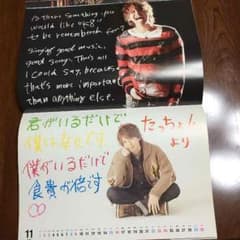 Is there something you
would like
to be remembered for?
Singing good music,
good songs. That's all
I could say, because
that's more important
than anything else.
君がいるだけで
僕は幸せです
たっちょん
より
僕がいるだけで
食費が倍です
11